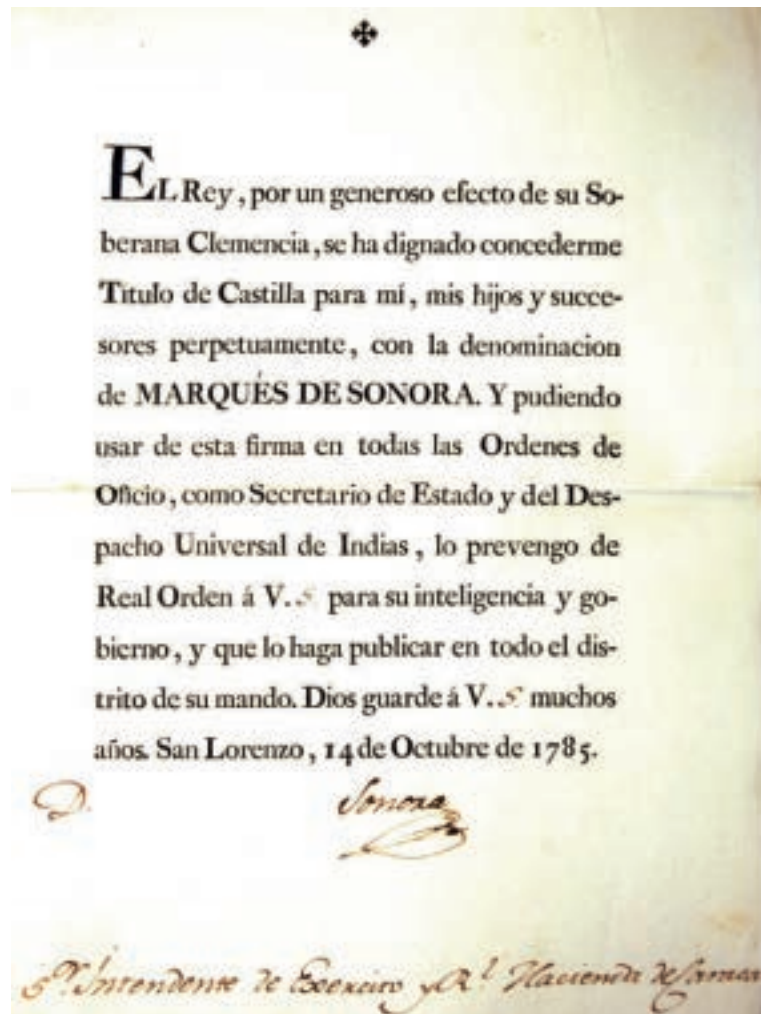 EL Rey, por un generoso efecto de su So-
berana Clemencia, se ha dignado concederme
Titulo de Castilla para mí, mis hijos y succe-
sores perpetuamente, con la denominacion
de MARQUÉS DE SONORA. Y pudiendo
usar de esta firma en todas las Ordenes de
Oficio, como Secretario de Estado y del Des-
pacho Universal de Indias, lo prevengo de
Real Orden á V..S para su inteligencia y go-
bierno, y que lo haga publicar en todo el dis-
trito de su mando. Dios guarde á V..S muchos
años. San Lorenzo, 14 de Octubre de 1785.
D. Sonora
S.r Intendente de Exercito y R.l Hacienda de